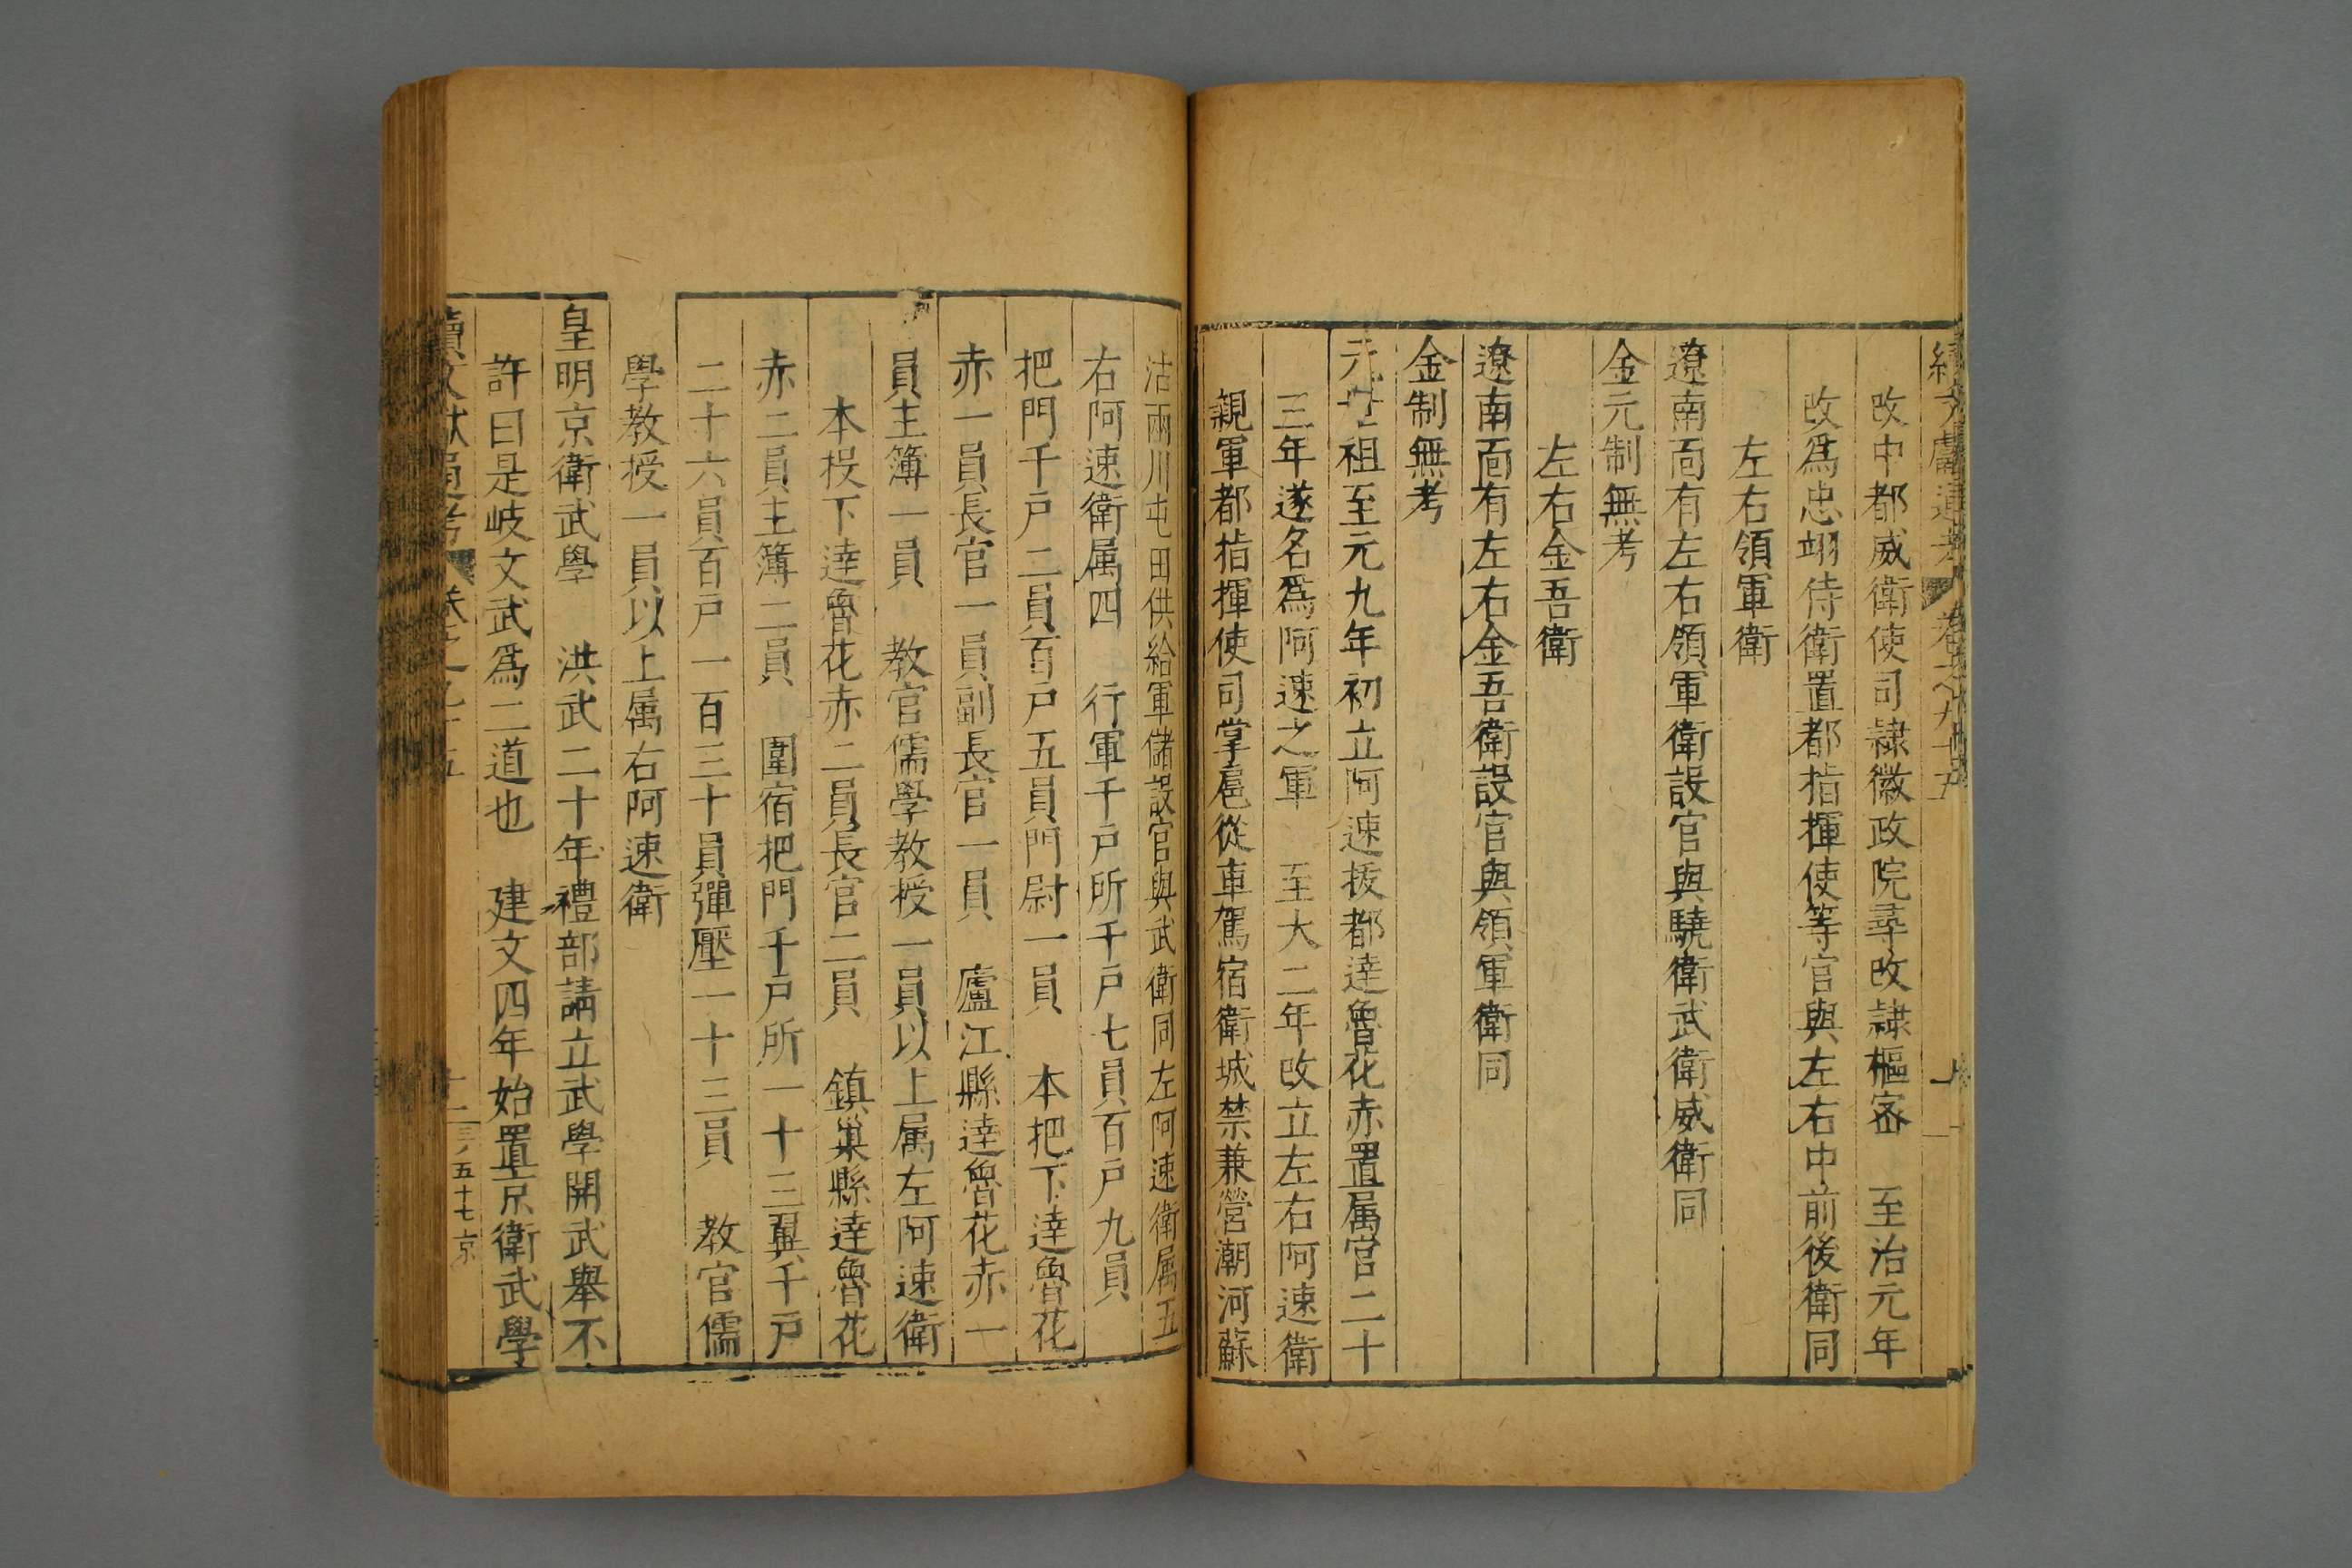 續文獻通考 卷之九十五
改中都威衛使司隷徽政院尋改隷樞密 至治元年
改爲忠翊侍衛置都指揮使等官與左右中前後衛同
左右領軍衛
遼南面有左右領軍衛設官與驍衛武衛威衛同
金元制無考
左右金吾衛
遼南面有左右金吾衛設官與領軍衛同
金制無考
元世祖至元九年初立阿速拔都達魯花赤置属官二十
三年遂名爲阿速之軍 至大二年改立左右阿速衛
親軍都指揮使司掌扈從車駕宿衛城禁兼營潮河蘇
沽兩川屯田供給軍儲設官與武衛同左阿速衛属五
右阿速衛属四 行軍千戶所千戶七員百戶九員
把門千戶二員百戶五員門尉一員 本把下達魯花
赤一員長官一員副長官一員 廬江縣達魯花赤一
員主簿一員 教官儒學教授一員以上属左阿速衛
本投下達魯花赤二員長官二員 鎮巢縣達魯花
赤二員主簿二員 圍宿把門千戶所一十三翼千戶
二十六員百戶一百三十員彈壓一十三員 教官儒
學教授一員以上属右阿速衛
皇明京衛武學 洪武二十年禮部請立武學開武舉不
許曰是岐文武爲二道也 建文四年始置京衛武學
續文獻通考 卷之九十五 五十七京